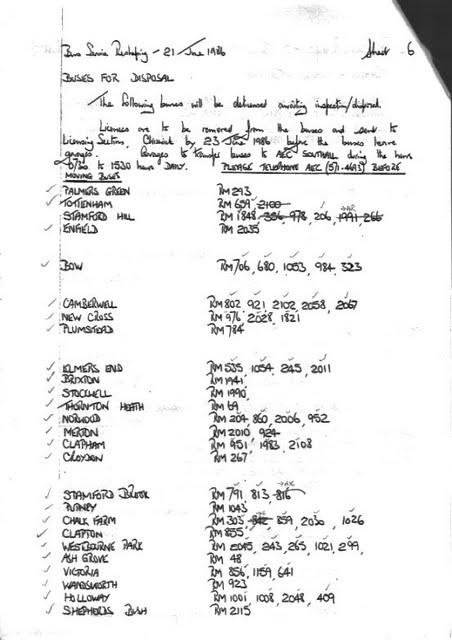 Bus Service Reshaping - 21 June 1986 Sheet 6
BUSES FOR DISPOSAL
The following buses will be delicensed awaiting inspection/disposal.
Licences are to be removed from the buses and sent to
Licensing Section, Chiswick by 23 June 1986 before the buses leave
garages. Garages to transfer buses to AEC SOUTHALL during the hours
0730 to 1530 hours DAILY. PLEASE TELEPHONE AEC (571-4693) BEFORE
MOVING BUSES
PALMERS GREEN RM 293
TOTTENHAM RM 659, 2100
STAMFORD HILL RM 1848, 386, 978, 206, 1991, 266
ENFIELD RM 2035
BOW RM 706, 680, 1053, 984, 323
CAMBERWELL RM 802, 921, 2102, 2058, 2067
NEW CROSS RM 976, 2028, 1821
PLUMSTEAD RM 784
ELMERS END RM 535, 1054, 245, 2011
BRIXTON RM 1941
STOCKWELL RM 1990
THORNTON HEATH RM 69
NORWOOD RM 204, 860, 2006, 952
MERTON RM 2010, 924
CLAPHAM RM 951, 1983, 2108
CROYDON RM 267
STAMFORD BROOK RM 791, 813, 816
PUTNEY RM 1043
CHALK FARM RM 303, 842, 859, 2030, 1026
CLAPTON RM 855
WESTBOURNE PARK RM 2045, 243, 265, 1021, 299,
ASH GROVE RM 48
VICTORIA RM 856, 1159, 641
WANDSWORTH RM 923
HOLLOWAY RM 1001, 1008, 2048, 409
SHEPHERDS BUSH RM 2115